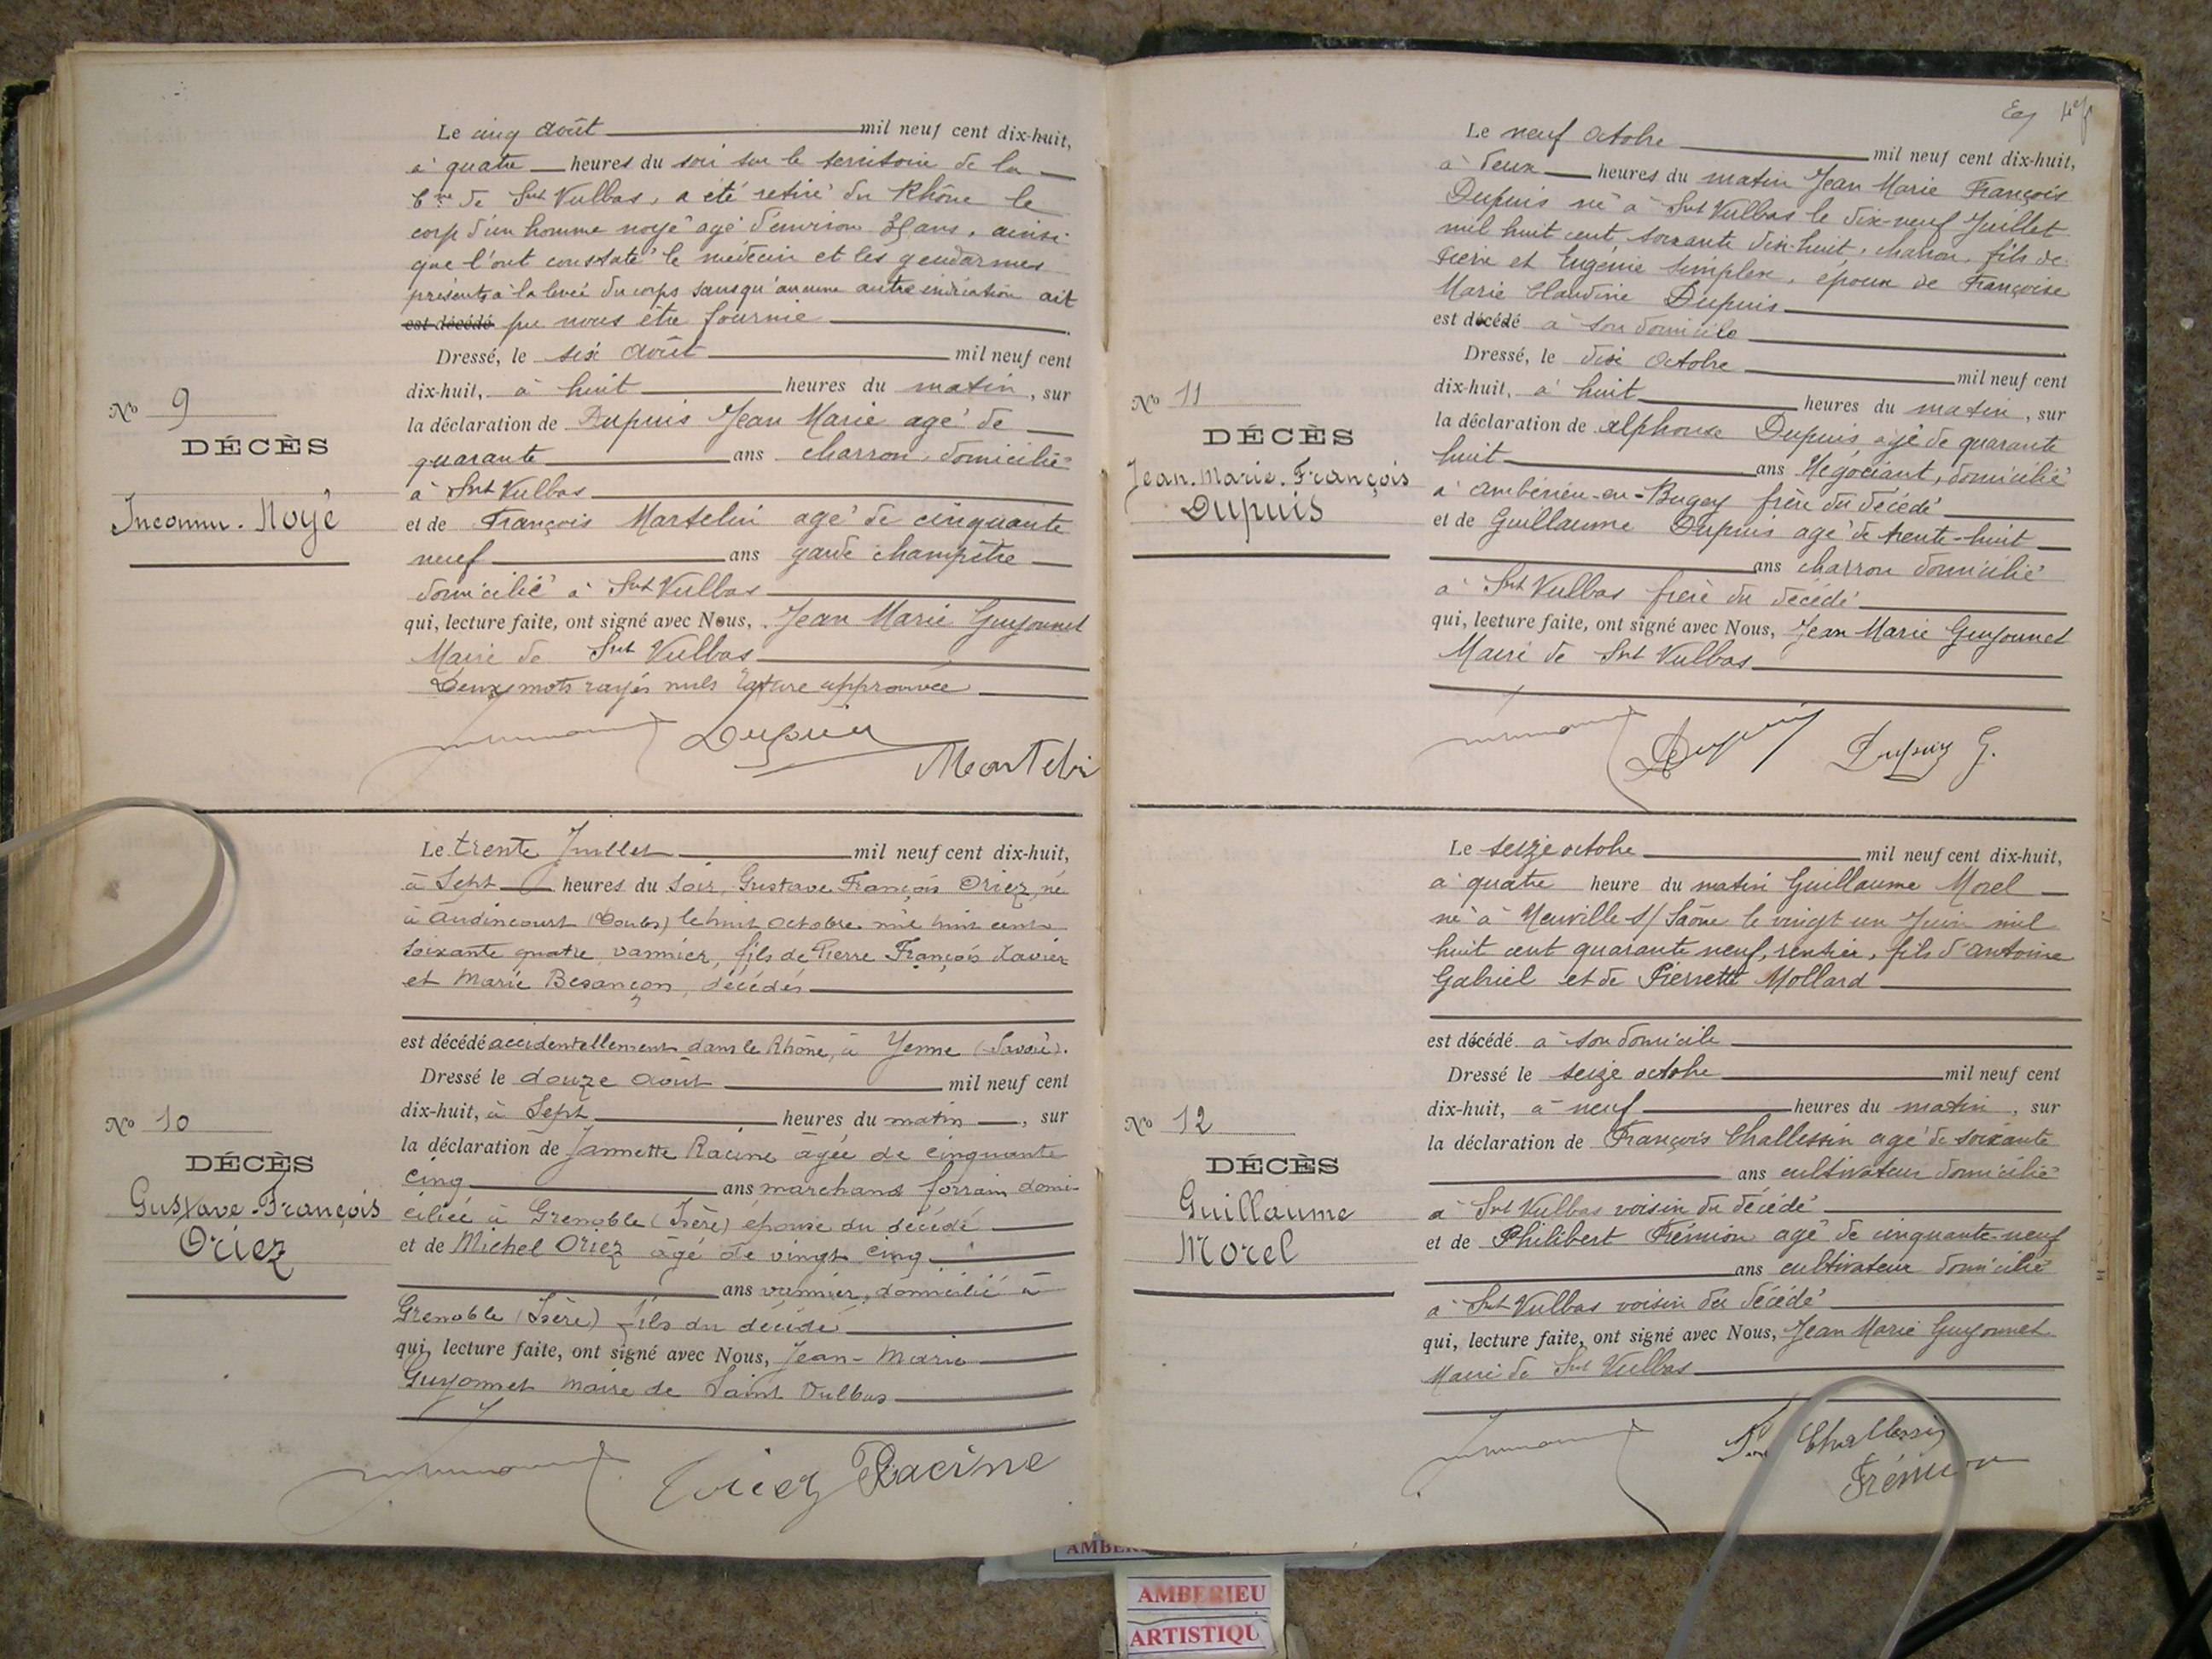 Le cinq août mil neuf cent dix-huit,
à quatre heures du soir sur le territoire de la
Cne de Snt Vulbas, a été retiré du Rhône le
corp d'un homme noyé agé d'environ ans, ainsi
que l'ont constaté le médecin et les gendarmes
présents à la levée du corps sans qu'aucune autre indication ait
est décédé pu nous être fournie
Dressé, le six août mil neuf cent
dix-huit, à huit heures du matin, sur
No 9
DÉCÈS
Inconnu. Noyé
la déclaration de Dupuis Jean Marie agé de
quarante ans charron, domicilié
à Snt Vulbas
et de François Martelin agé de cinquante
neuf ans garde champêtre
domicilié à Snt Vulbas
qui, lecture faite, ont signé avec Nous, Jean Marie Guyonnet
Maire de Snt Vulbas
Deux mots rayés nuls rature approuvée
Dupuis
Martelin
Le trente Juillet mil neuf cent dix-huit,
à Sept heures du soir, Gustave François Oriez, né
à Audincourt (Doubs) le huit octobre mil huit cent
soixante quatre, vannier, fils de Pierre François Xavier
et Marie Besançon, décédés
est décédé accidentellement dans le Rhône, à Yenne (Savoie).
Dressé le douze août mil neuf cent
dix-huit, à Sept heures du matin, sur
No 10
DÉCÈS
Gustave-François
Oriez
la déclaration de Jannette Racine âgée de cinquante
cinq ans marchand forrain domi-
ciliée à Grenoble (Isère) épouse du décédé
et de Michel Oriez âgé de vingt cinq
ans vannier, domicilié à
Grenoble (Isère) fils du décédé
qui, lecture faite, ont signé avec Nous, Jean-Marie
Guyonnet maire de Saint Vulbas
Oriez Racine
Le neuf octobre mil neuf cent dix-huit,
à deux heures du matin Jean Marie François
Dupuis né à Snt Vulbas le dix-neuf Juillet
mil huit cent soixante dix-huit, charron, fils de
Pierre et Eugenie Simplex, époux de Françoise
Marie Claudine Dupuis
est décédé à son domicile
Dressé, le dix octobre mil neuf cent
dix-huit, à huit heures du matin, sur
No 11
DÉCÈS
Jean.Marie.François
Dupuis
la déclaration de Alphonse Dupuis agé de quarante
huit ans Négociant, domicilié
à Ambérieu-en-Bugey frère du décédé
et de Guillaume Dupuis agé de trente-huit
ans charron domicilié
à Snt Vulbas frère du décédé
qui, lecture faite, ont signé avec Nous, Jean Marie Guyonnet
Maire de Snt Vulbas
Dupuis Dupuis G.
Le seize octobre mil neuf cent dix-huit,
à quatre heure du matin Guillaume Morel
né à Neuville s/ Saône le vingt un Juin mil
huit cent quarante neuf, rentier, fils d'Antoine
Gabriel et de Pierrette Mollard
est décédé à son domicile
Dressé le seize octobre mil neuf cent
dix-huit, à neuf heures du matin, sur
No 12
DÉCÈS
Guillaume
Morel
la déclaration de François Challessin agé de soixante
ans cultivateur domicilié
à Snt Vulbas voisin du décédé
et de Philibert Frémion agé de cinquante-neuf
ans cultivateur domicilié
à Snt Vulbas voisin du décédé
qui, lecture faite, ont signé avec Nous, Jean Marie Guyonnet
Maire de Snt Vulbas
Challessin
Frémion
AMBERIEU
ARTISTIQU